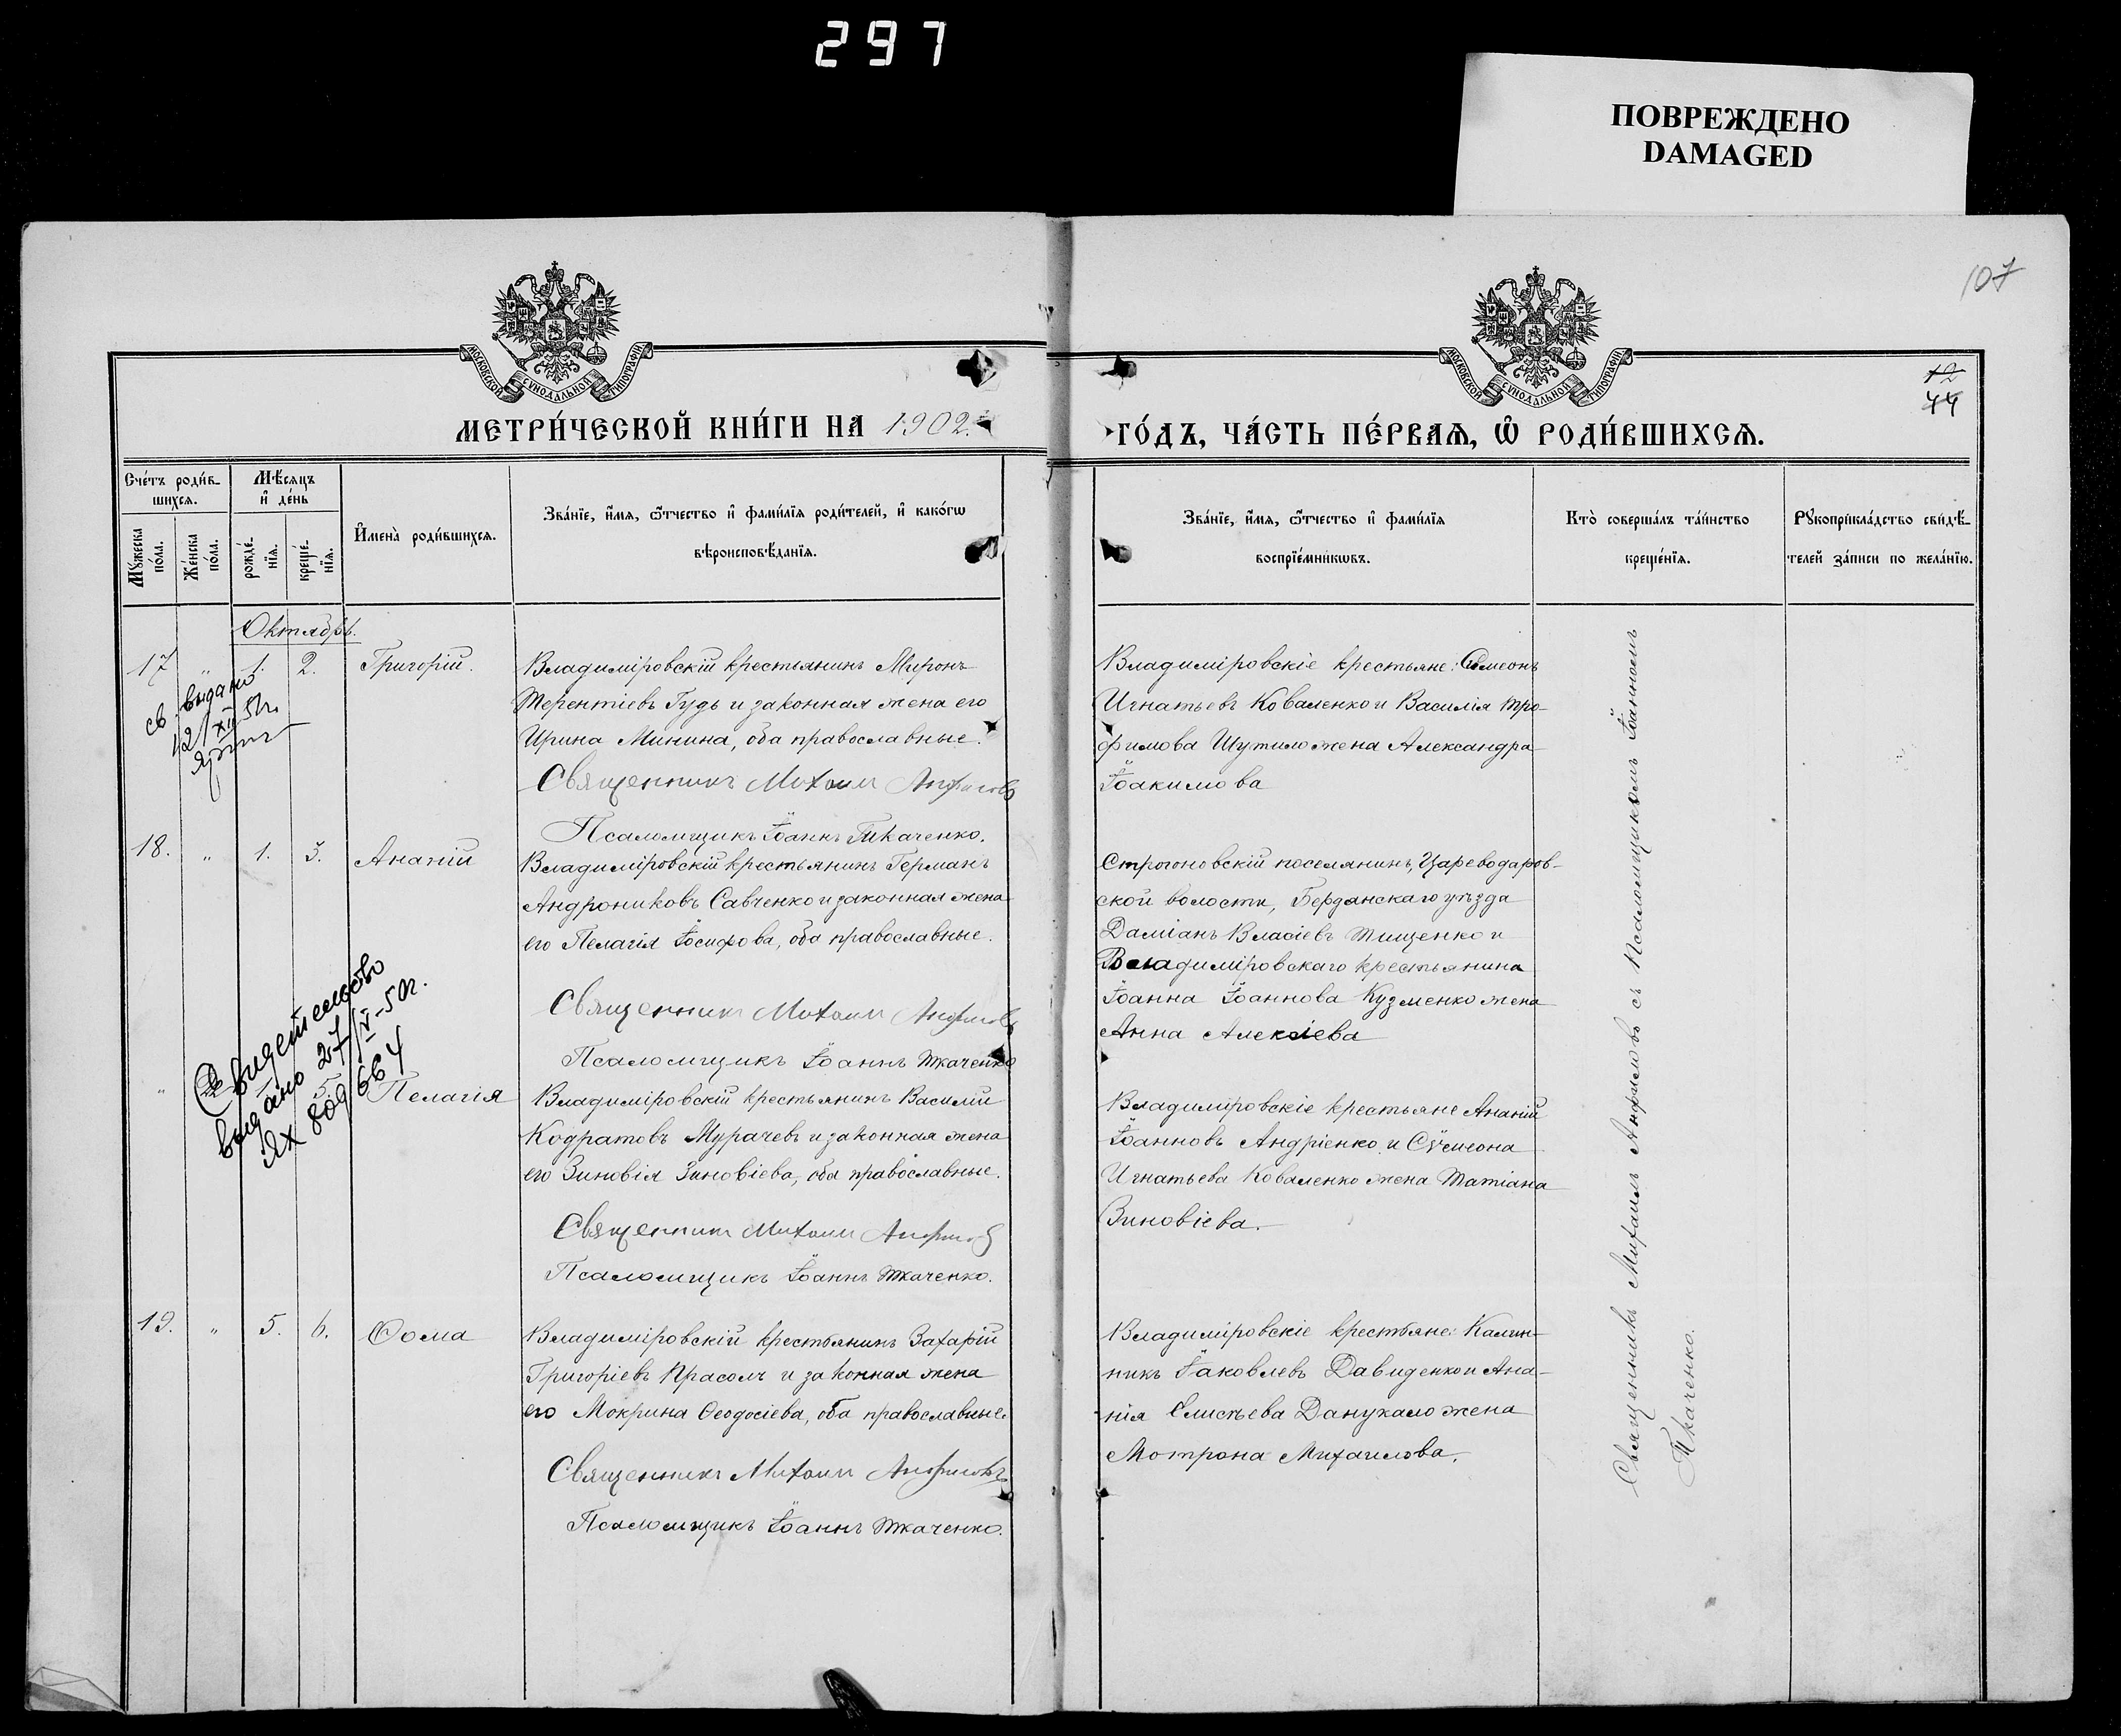 297
ПОВРЕЖДЕНО
DAMAGED
107
МОСКОВСКОЙ СѴНОДАЛЬНОЙ ТИПОГРАФІИ
МОСКОВСКОЙ СѴНОДАЛЬНОЙ ТИПОГРАФІИ
12
44
МЕТРИ́ЧЕСКОЙ КНИ́ГИ НА 1902.
ГО́ДЪ, ЧА́СТЬ ПЕ́РВАѦ, Ѽ РОДИ́ВШИХСѦ.
Сче́тъ роди́в-
шихсѧ.
Мѣ́сѧцъ
и҆ де́нь
Мꙋжеска
по́ла.
Же́нска
по́ла.
рожде́-
нїѧ.
креще́-
нїѧ.
И҆мена̀ роди́вшихсѧ.
Зва́нїе, и҆́мѧ, ѻ҆́тчество и҆ фами́лїѧ роди́телей, и҆ како́гѡ
вѣроисповѣ́данїѧ.
Зва́нїе, и҆́мѧ, ѻ҆́тчество и҆ фами́лїѧ
воспрїе́мникѡвъ.
Кто̀ соверша́лъ та́инство
креще́нїѧ.
Рꙋкоприкла́дство свидѣ́-
телей за́писи по жела́нїю.
Октябрь.
17 " 1. 2. Григорій.
Владиміровскій крестьянинъ Миронъ
Терентіевъ Гудь и законная жена его
Ирина Минина, оба православные.
Священникъ Михаилъ Анфимовъ
Псаломщикъ Іоаннъ Ткаченко.
св. выдано
12/XII 51г.
Владиміровскіе крестьяне: Симеонъ
Игнатьевъ Коваленко и Василія Тро-
фимова Шутило жена Александра
Іоакимова
18. " 1. 3. Ананій
Владиміровскій крестьянинъ Германъ
Андрониковъ Савченко и законная жена
его Пелагія Іосифова, оба православные.
Священникъ Михаилъ Анфимовъ
Псаломщикъ Іоаннъ Ткаченко
Строгоновскій поселянинъ, Цареводаров-
ской волости, Бердянскаго уѣзда
Даміанъ Власіевъ Тищенко и
Владиміровскаго крестьянина
Іоанна Іоаннова Кузменко жена
Анна Алексіева
Свидетельство
выдано 27/IV-50г.
ЯХ 809664
" 5. Пелагія
Владиміровскій крестьянинъ Василій
Кодратовъ Мурачевъ и законная жена
его Зиновія Зиновіева, оба православные.
Священникъ Михаилъ Анфимовъ
Псаломщикъ Іоаннъ Ткаченко.
Владиміровскіе крестьяне Ананій
Іоанновъ Андріенко и Сѵмеона
Игнатьева Коваленко жена Татіана
Зиновіева.
19. " 5. 6. Ѳома
Владиміровскій крестьянинъ Захарій
Григоріевъ Прасолъ и законная жена
его Мокрина Ѳеодосіева, оба православные.
Священникъ Михаилъ Анфимовъ
Псаломщикъ Іоаннъ Ткаченко.
Владиміровскіе крестьяне: Калин-
никъ Іаковлевъ Давиденко и Ана-
нія Елисѣева Данукало жена
Мотрона Михаилова.
Священникъ Михаилъ Анфимовъ съ Псаломщикомъ Іоанномъ
Ткаченко.